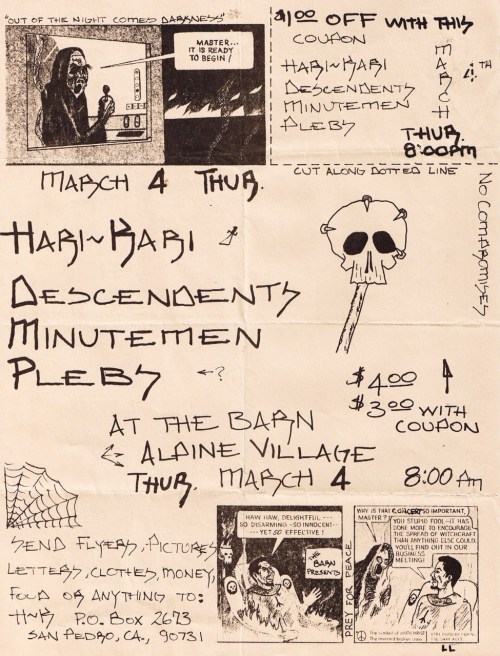 "OUT OF THE NIGHT COMES DARKNESS"
MASTER...
IT IS READY
TO BEGIN!
$1.00 OFF WITH THIS
COUPON
HARI-KARI
DESCENDENTS
MINUTEMEN
PLEBS
MARCH 4TH
THUR.
8:00pm
CUT ALONG DOTTED LINE
MARCH 4 THUR.
NO COMPROMISES
HARI~KARI
DESCENDENTS
MINUTEMEN
PLEBS ←?
$4.00
$3.00 WITH
COUPON
AT THE BARN
ALPINE VILLAGE
THUR. MARCH 4 8:00 Am
SEND FLYERS, PICTURES
LETTERS, CLOTHES, MONEY,
FOOD OR ANYTHING TO:
H~K P.O. BOX 2673
SAN PEDRO, CA., 90731
HAW HAW, DELIGHTFUL---
SO DISARMING-SO INNOCENT---
---YET SO EFFECTIVE!
THE
BARN
PRESENTS
PREY FOR PEACE
WHY IS THAT CONCERT SO IMPORTANT,
MASTER?
YOU STUPID FOOL-IT HAS
DONE MORE TO ENCOURAGE
THE SPREAD OF WITCHCRAFT
THAN ANYTHING ELSE COULD.
YOU'LL FIND OUT IN OUR
BUSINESS
MEETING!
The symbol of
The inverted broken cross
LL